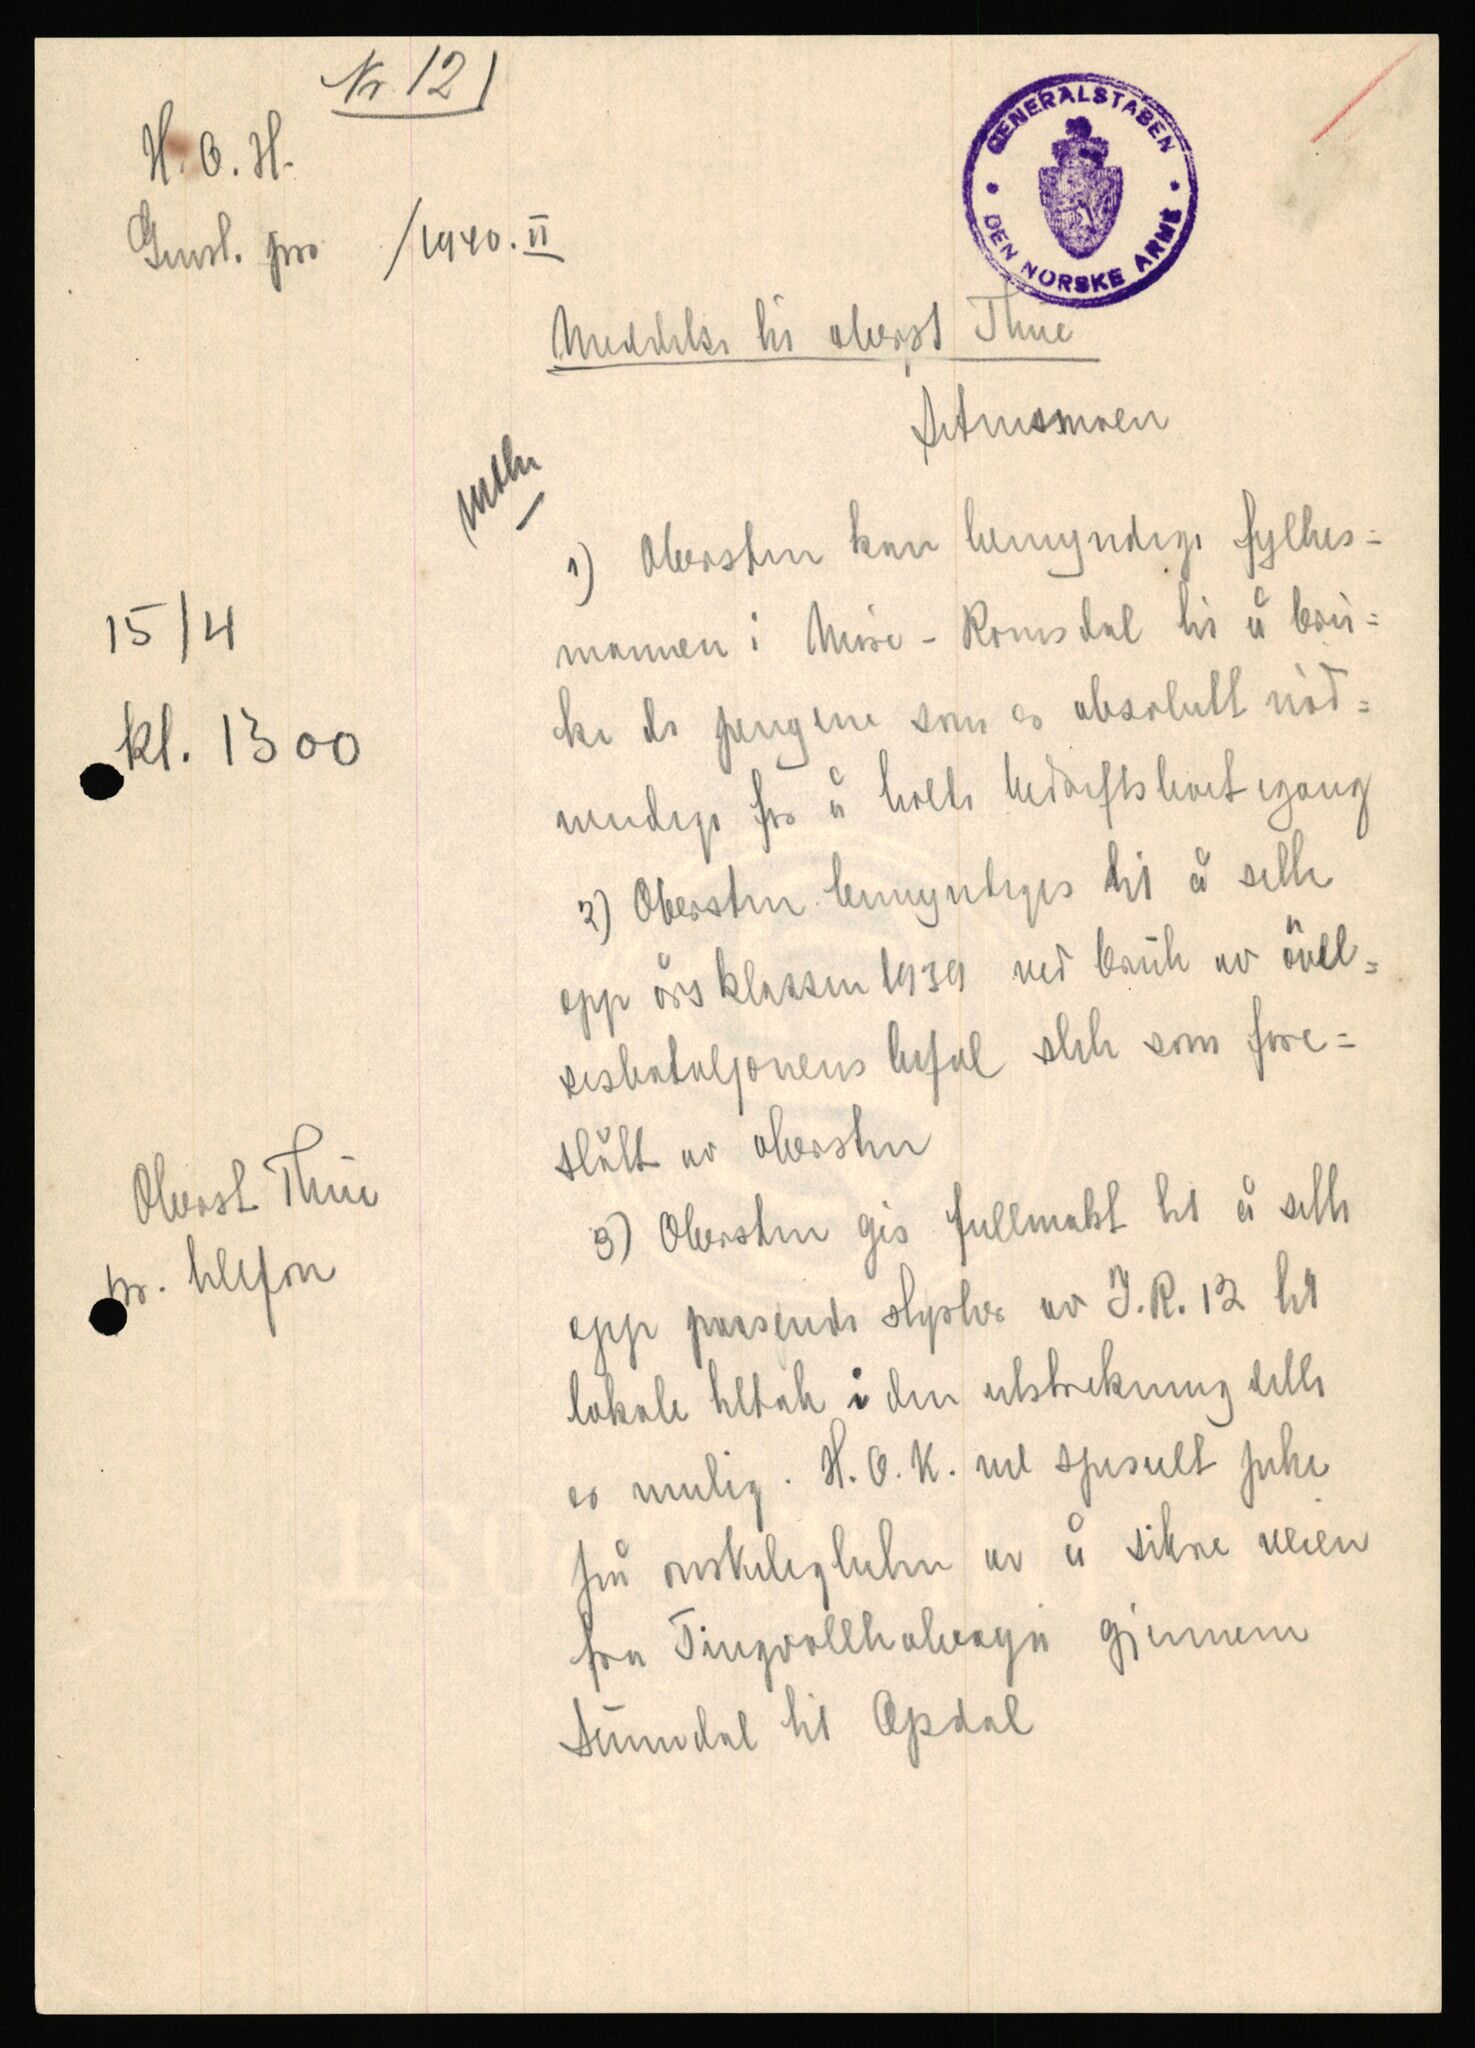 Nr. 12
H. O. K.
Gensl. pro /1940. II
GENERALSTABEN
DEN NORSKE ARMÉ
Meddelse til oberst Thue
Setnesmoen
15/4
kl. 1300
Oberst Thue
pr. telefon
1) Obersten kan bemyndige fylkes=
mannen i Möre - Romsdal til å brü=
ke de pengene som er absolutt nöd=
vendige for å holde bedriftslivet igang
2) Obersten bemyndiges til å sette
opp årsklassen 1939 ved brük av övel=
sesbataljonens befal slik som fore=
slått av obersten
3) Obersten gis fullmakt til å sette
opp passende styrker av I.R. 12 til
lokale tiltak i den utstrekning dette
er mulig. H.O.K. vil spesielt peke
på önskeligheten av å sikre veien
fra Tingvollhalvöya gjennem
Sünndal til Opdal